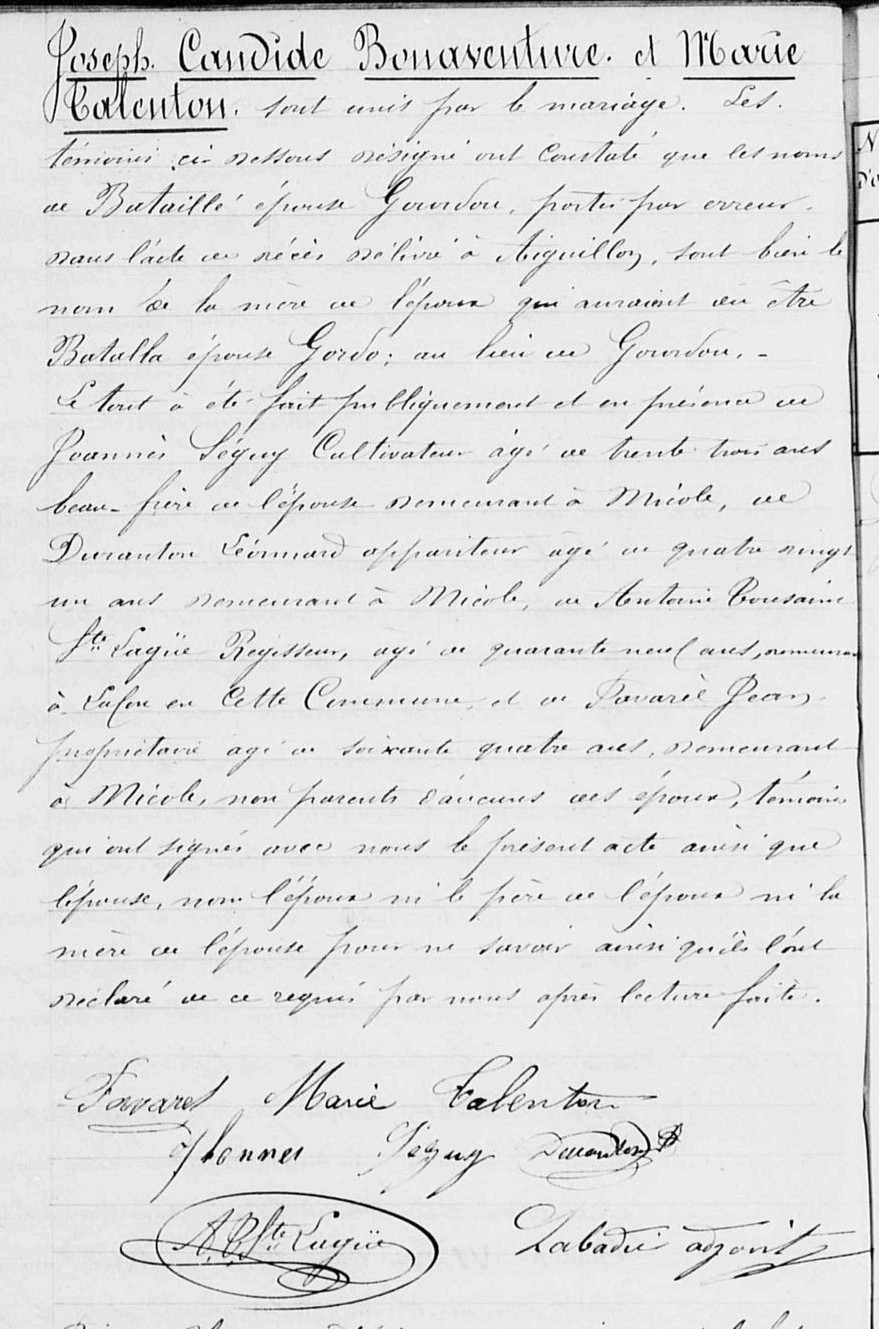 Joseph. Candide Bonaventure. et Marie
Talenton. sont unis par le mariage. Les.
témoins ci-dessous désigné ont constaté que les noms
de Bataillé épouse Gourdon, portés par erreur.
dans l'acte de décès délivré à Aiguillon, sont bien le
nom de la mère de l'époux qui auraient du être
Batalla épouse Gordo; au lieu de Gourdon. -
Le tout a été fait publiquement et en présence de
Joannès Séguy Cultivateur âgé de trente trois ans
beau-frère de l'épouse demeurant à Nicole, de
Duranton Léonard appariteur âgé de quatre vingt
un ans demeurant à Nicole, de Antoine Tousaint
Ste Lagüe Régisseur, âgé de quarante neuf ans, demeuran
à en Cette Commune, et de Favarel Jean
propriétaire âgé de soixante quatre ans, demeurant
à Nicole, non parents d'aucuns des époux, témoins
qui ont signés avec nous le présent acte ainsi que
l'épouse, non l'époux ni le père de l'époux ni la
mère de l'épouse pour ne savoir ainsi qu'ils l'ont
déclaré de ce requis par nous après lecture faite.
Favarel Marie Talenton
Séguy Duranton
A. T. Ste Lagüe Labadie adjoint